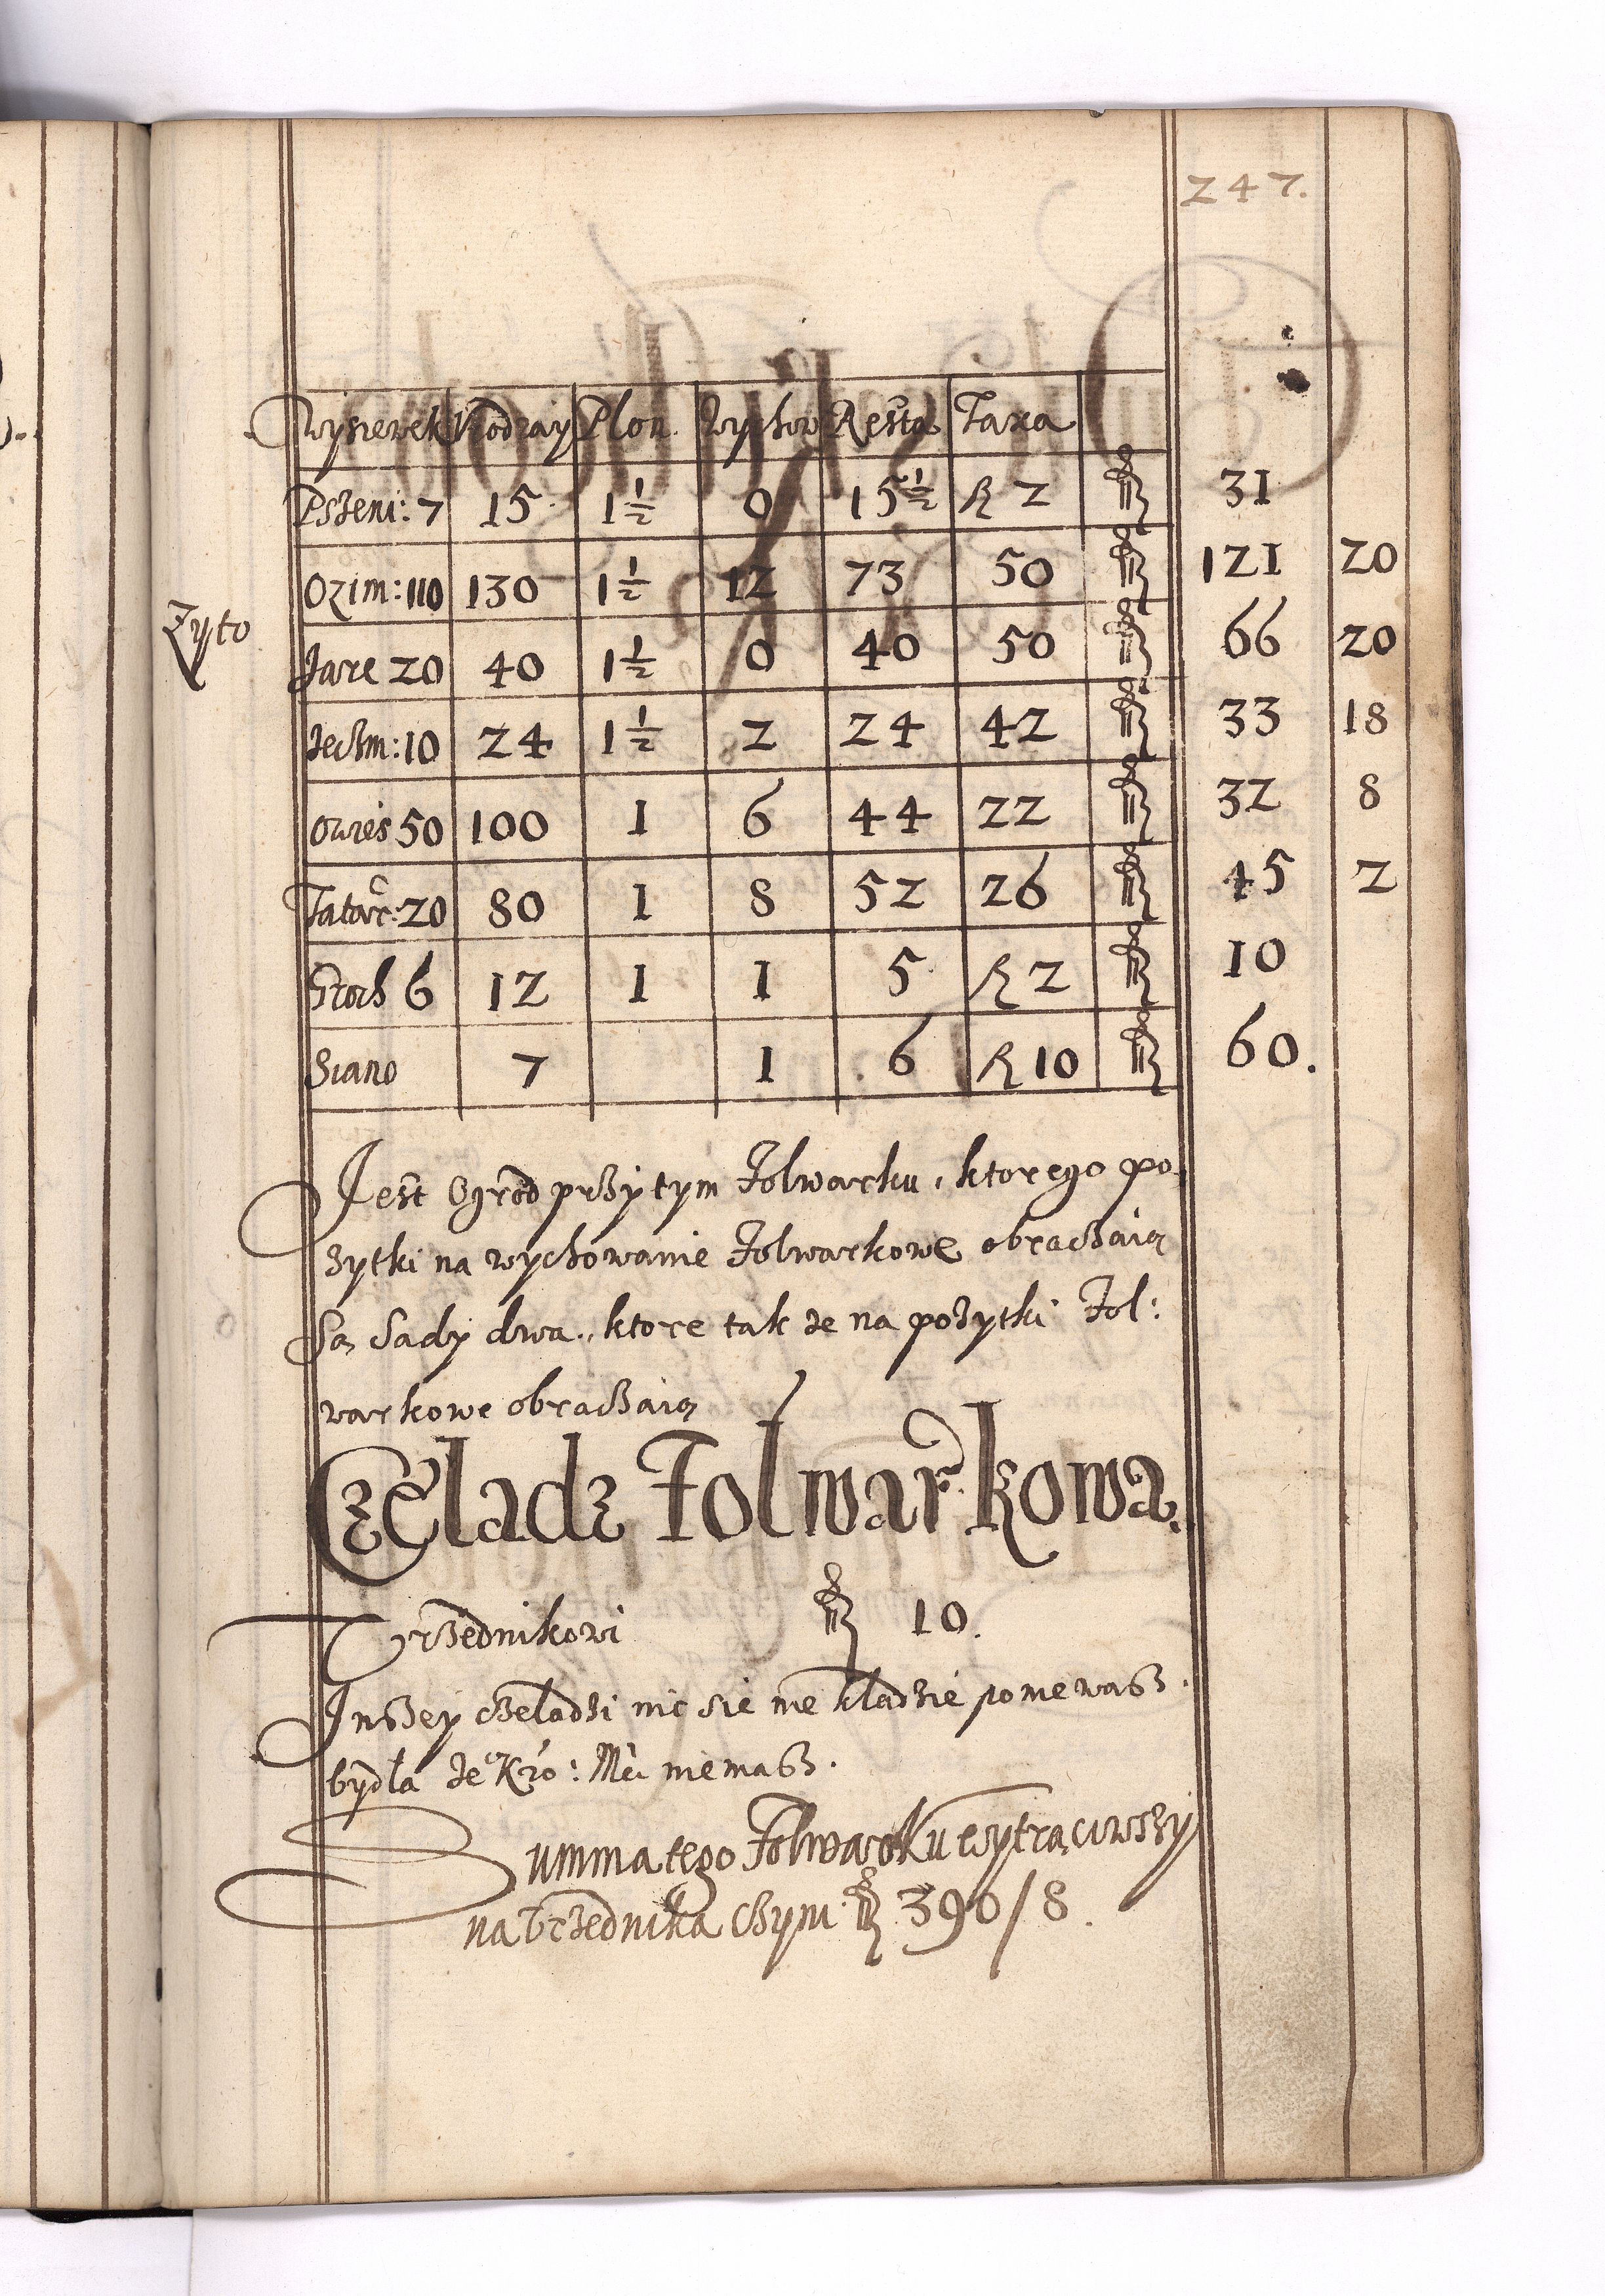 247.
Wysiewek Vrodzay Plon. Wychow Resta Taxa
Pszeni: 7 15 1½ 0 15½ fl 2 fl 31
Żyto
Ozim: 110 130 1½ 12 73 50 fl 121 20
Jare 20 40 1½ 0 40 50 fl 66 20
Jeczm: 10 24 1½ 2 24 42 fl 33 18
Owies 50 100 1 6 44 22 fl 32 8
Tatarc: 20 80 1 8 52 26 fl 45 2
Groch 6 12 1 1 5 fl 2 fl 10
Siano 7 1 6 fl 10 fl 60.
Jest Ogrod przy tym Folwarku, ktorego po
zytki na wychowanie Folwarkowe obraczaią
Są Sady dwa, ktore tak ze na pożytki Fol:
warkowe obraczaią
Czeladz Folwarkowa.
Vrzednikowi fl 10.
Jnszey czeladzi nic sie nie kladzie poniewasz.
bydła Je° Kró: Mci niemasz.
Summa tego Folwarku wytrąciwszy
na Vrzednika czyni fl 390/8.